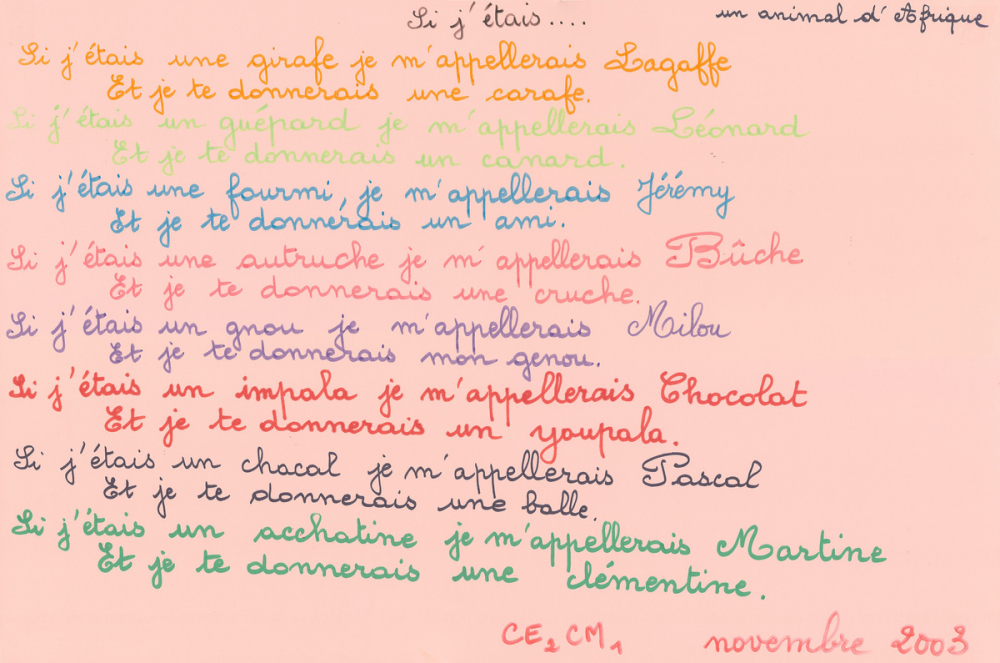 Si j'étais.... un animal d'Afrique
Si j'étais une girafe je m'appellerais Lagaffe
Et je te donnerais une carafe.
Si j'étais un guépard je m'appellerais Léonard
Et je te donnerais un canard.
Si j'étais une fourmi, je m'appellerais Jérémy
Et je te donnerais un ami.
Si j'étais une autruche je m'appellerais Bûche
Et je te donnerais une cruche.
Si j'étais un gnou je m'appellerais Milou
Et je te donnerais mon genou.
Si j'étais un impala je m'appellerais Chocolat
Et je te donnerais un youpala.
Si j'étais un chacal je m'appellerais Pascal
Et je te donnerais une balle.
Si j'étais un acchatine je m'appellerais Martine
Et je te donnerais une clémentine.
CE2 CM1 novembre 2003